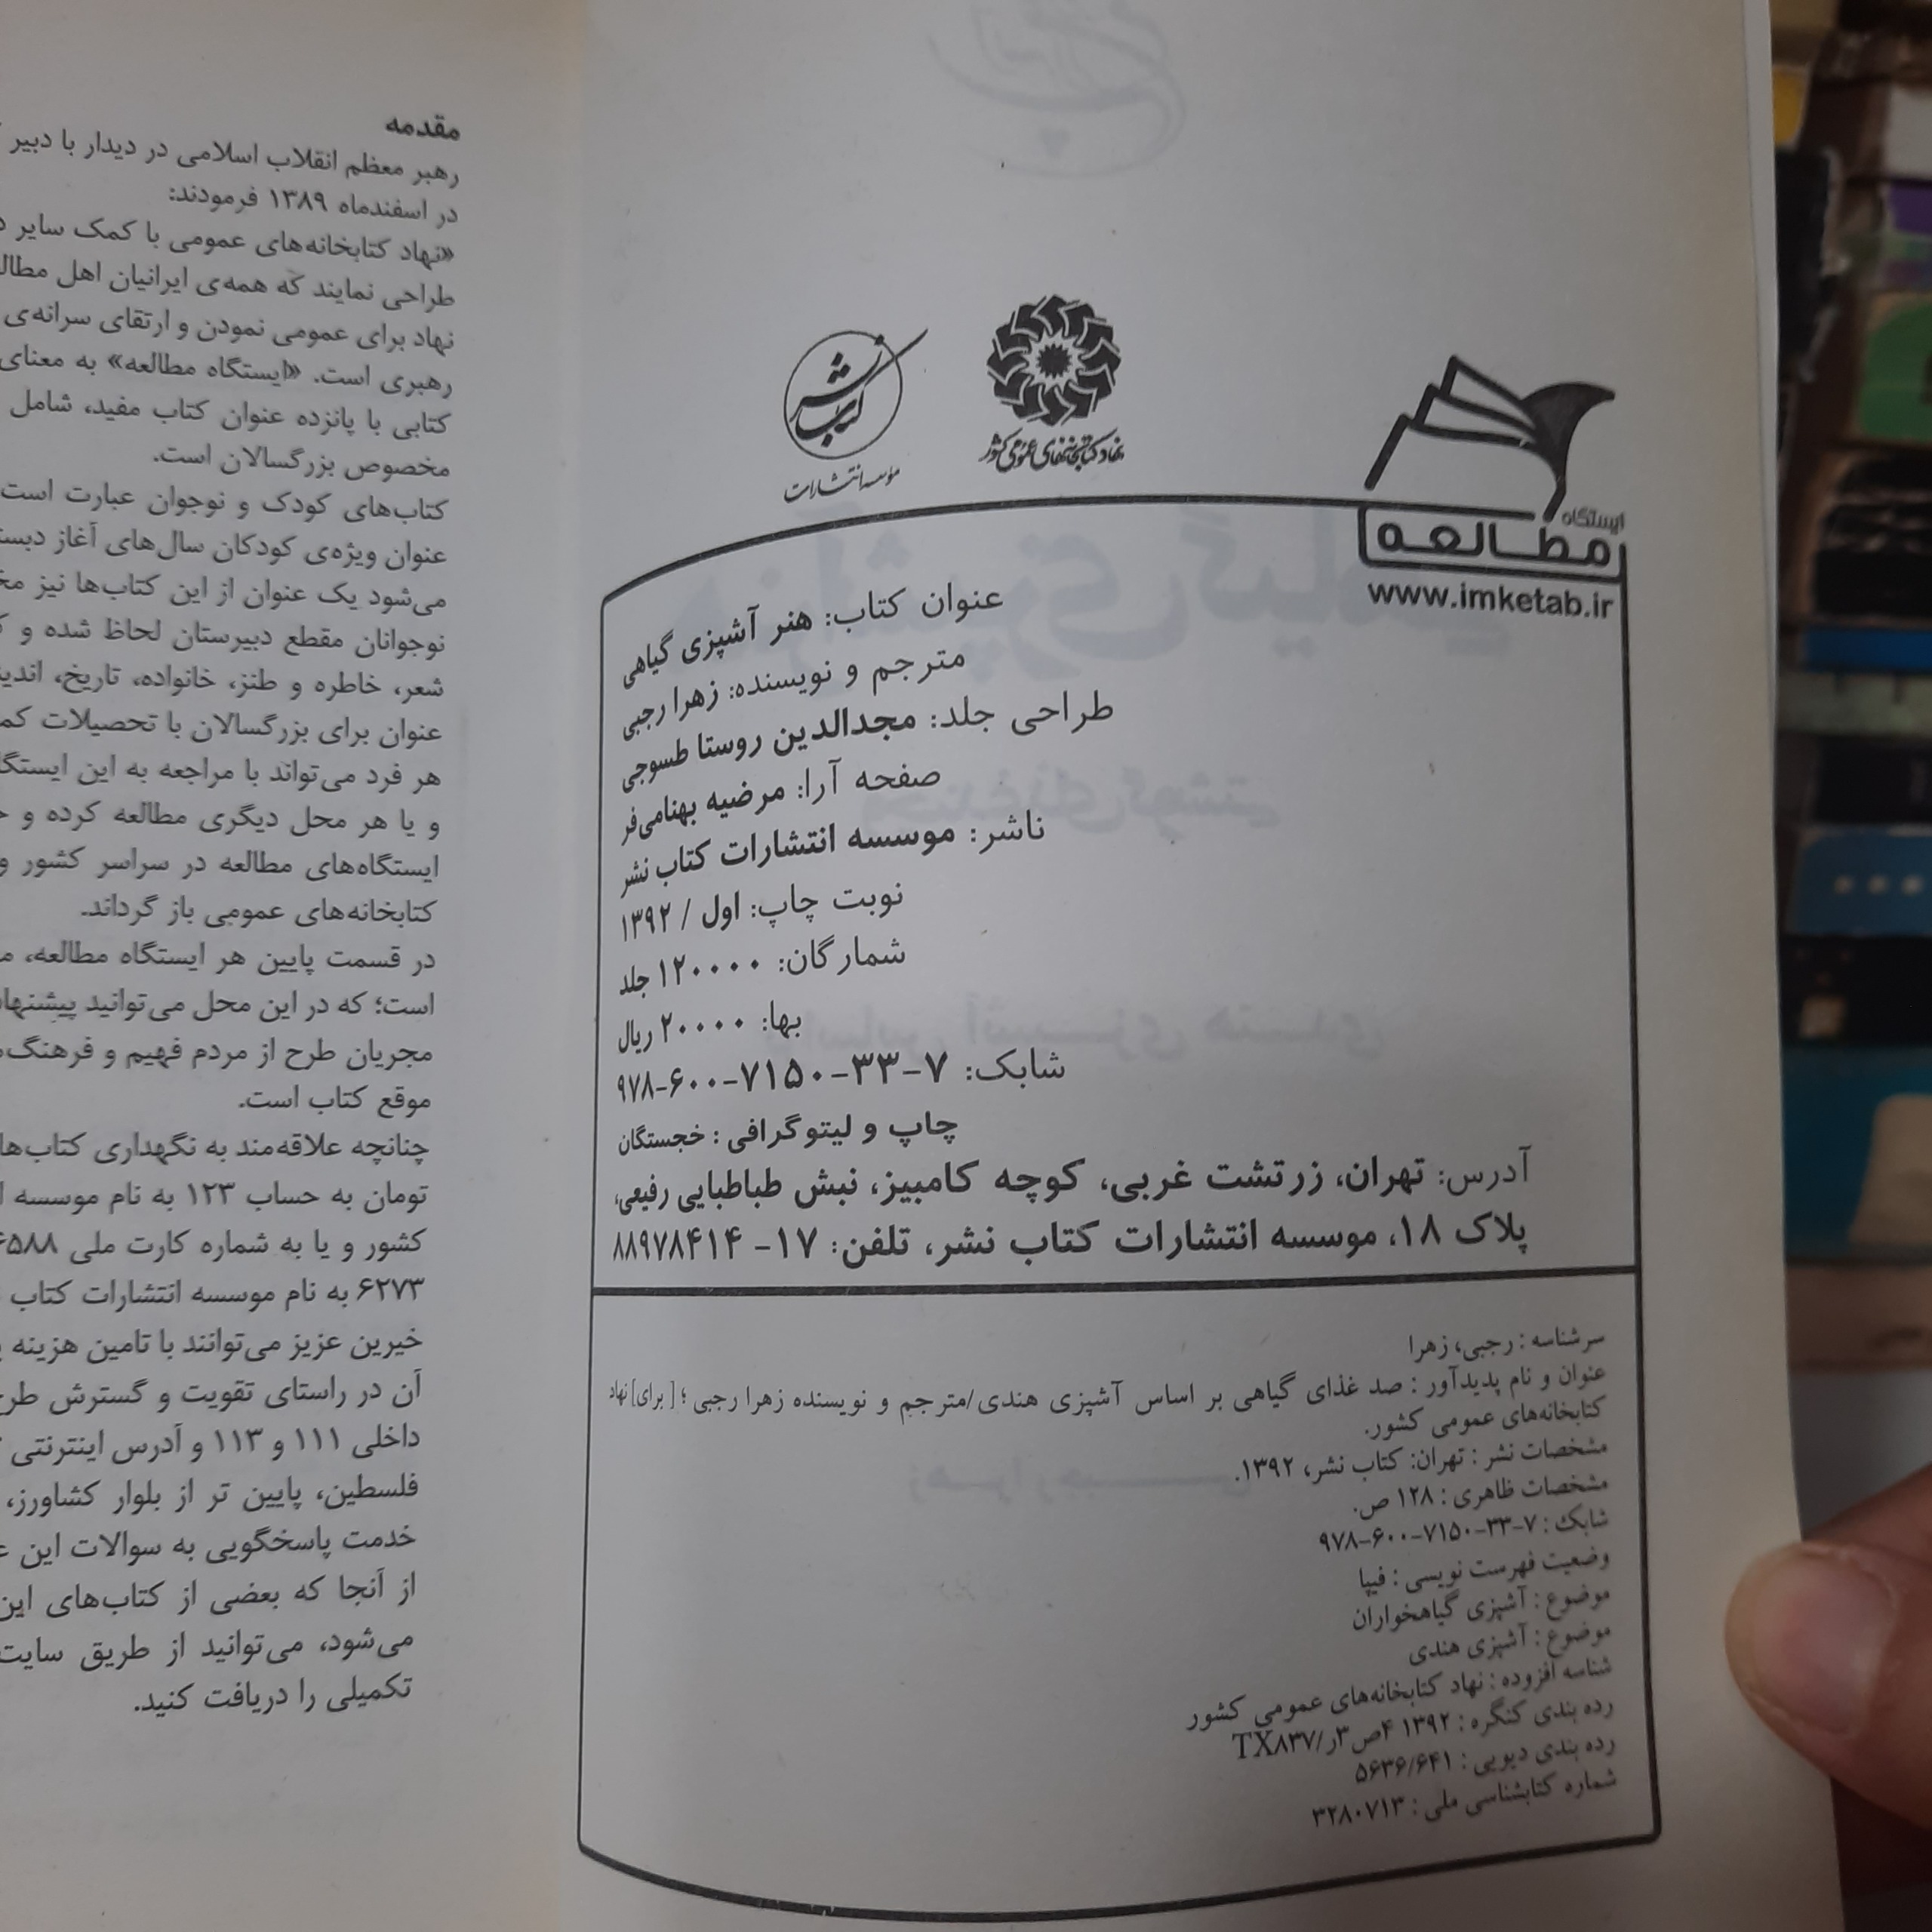 نهاد کتابخانه‌های عمومی کشور
کتاب نشر
مؤسسه انتشارات
ایستگاه
مطالعه
www.imketab.ir
عنوان کتاب: هنر آشپزی گیاهی
مترجم و نویسنده: زهرا رجبی
طراحی جلد: مجدالدین روستا طسوجی
صفحه آرا: مرضیه بهنامی‌فر
ناشر: موسسه انتشارات کتاب نشر
نوبت چاپ: اول / ۱۳۹۲
شمارگان: ۱۲۰۰۰۰ جلد
بها: ۲۰۰۰۰ ریال
شابک: ۷-۳۳-۷۱۵۰-۶۰۰-۹۷۸
چاپ و لیتوگرافی : خجستگان
آدرس: تهران، زرتشت غربی، کوچه کامبیز، نبش طباطبایی رفیعی،
پلاک ۱۸، موسسه انتشارات کتاب نشر، تلفن: ۱۷- ۸۸۹۷۸۴۱۴
سرشناسه : رجبی، زهرا
عنوان و نام پدیدآور : صد غذای گیاهی بر اساس آشپزی هندی/مترجم و نویسنده زهرا رجبی ؛ [ برای] نهاد
کتابخانه‌های عمومی کشور.
مشخصات نشر : تهران: کتاب نشر، ۱۳۹۲.
مشخصات ظاهری : ۱۲۸ ص.
شابک : ۷-۳۳-۷۱۵۰-۶۰۰-۹۷۸
وضعیت فهرست نویسی : فیپا
موضوع : آشپزی گیاهخواران
موضوع : آشپزی هندی
شناسه افزوده : نهاد کتابخانه‌های عمومی کشور
رده بندی کنگره : ۱۳۹۲ ۴ص۳ر/TX۸۳۷
رده بندی دیویی : ۵۶۳۶/۶۴۱
شماره کتابشناسی ملی : ۳۲۸۰۷۱۳
مقدمه
رهبر معظم انقلاب اسلامی در دیدار با دبیر
در اسفندماه ۱۳۸۹ فرمودند:
«نهاد کتابخانه‌های عمومی با کمک سایر
طراحی نمایند که همه‌ی ایرانیان اهل
نهاد برای عمومی نمودن و ارتقای سرانه‌ی
رهبری است. «ایستگاه مطالعه» به معنای
کتابی با پانزده عنوان کتاب مفید، شامل
مخصوص بزرگسالان است.
کتاب‌های کودک و نوجوان عبارت است
عنوان ویژه‌ی کودکان سال‌های آغاز
می‌شود یک عنوان از این کتاب‌ها نیز
نوجوانان مقطع دبیرستان لحاظ شده و
شعر، خاطره و طنز، خانواده، تاریخ،
عنوان برای بزرگسالان با تحصیلات
هر فرد می‌تواند با مراجعه به این
و یا هر محل دیگری مطالعه کرده و
ایستگاه‌های مطالعه در سراسر کشور و
کتابخانه‌های عمومی باز گرداند.
در قسمت پایین هر ایستگاه مطالعه،
است؛ که در این محل می‌توانید
مجریان طرح از مردم فهیم و
موقع کتاب است.
چنانچه علاقه‌مند به نگهداری
تومان به حساب ۱۲۳ به نام موسسه
کشور و یا به شماره کارت ملی
۶۲۷۳ به نام موسسه انتشارات کتاب
خیرین عزیز می‌توانند با تامین هزینه
آن در راستای تقویت و گسترش
داخلی ۱۱۱ و ۱۱۳ و آدرس اینترنتی
فلسطین، پایین تر از بلوار کشاورز،
خدمت پاسخگویی به سوالات این
از آنجا که بعضی از کتاب‌های
می‌شود، می‌توانید از طریق سایت
تکمیلی را دریافت کنید.